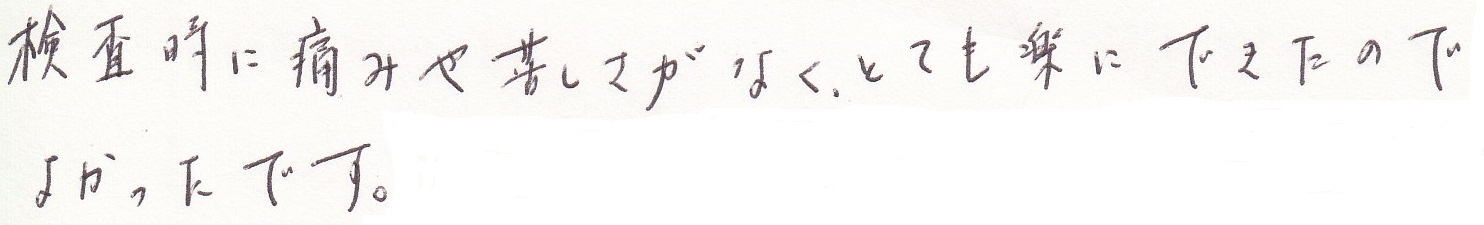 検査時に痛みや苦しさがなく、とても楽にできたので
よかったです。